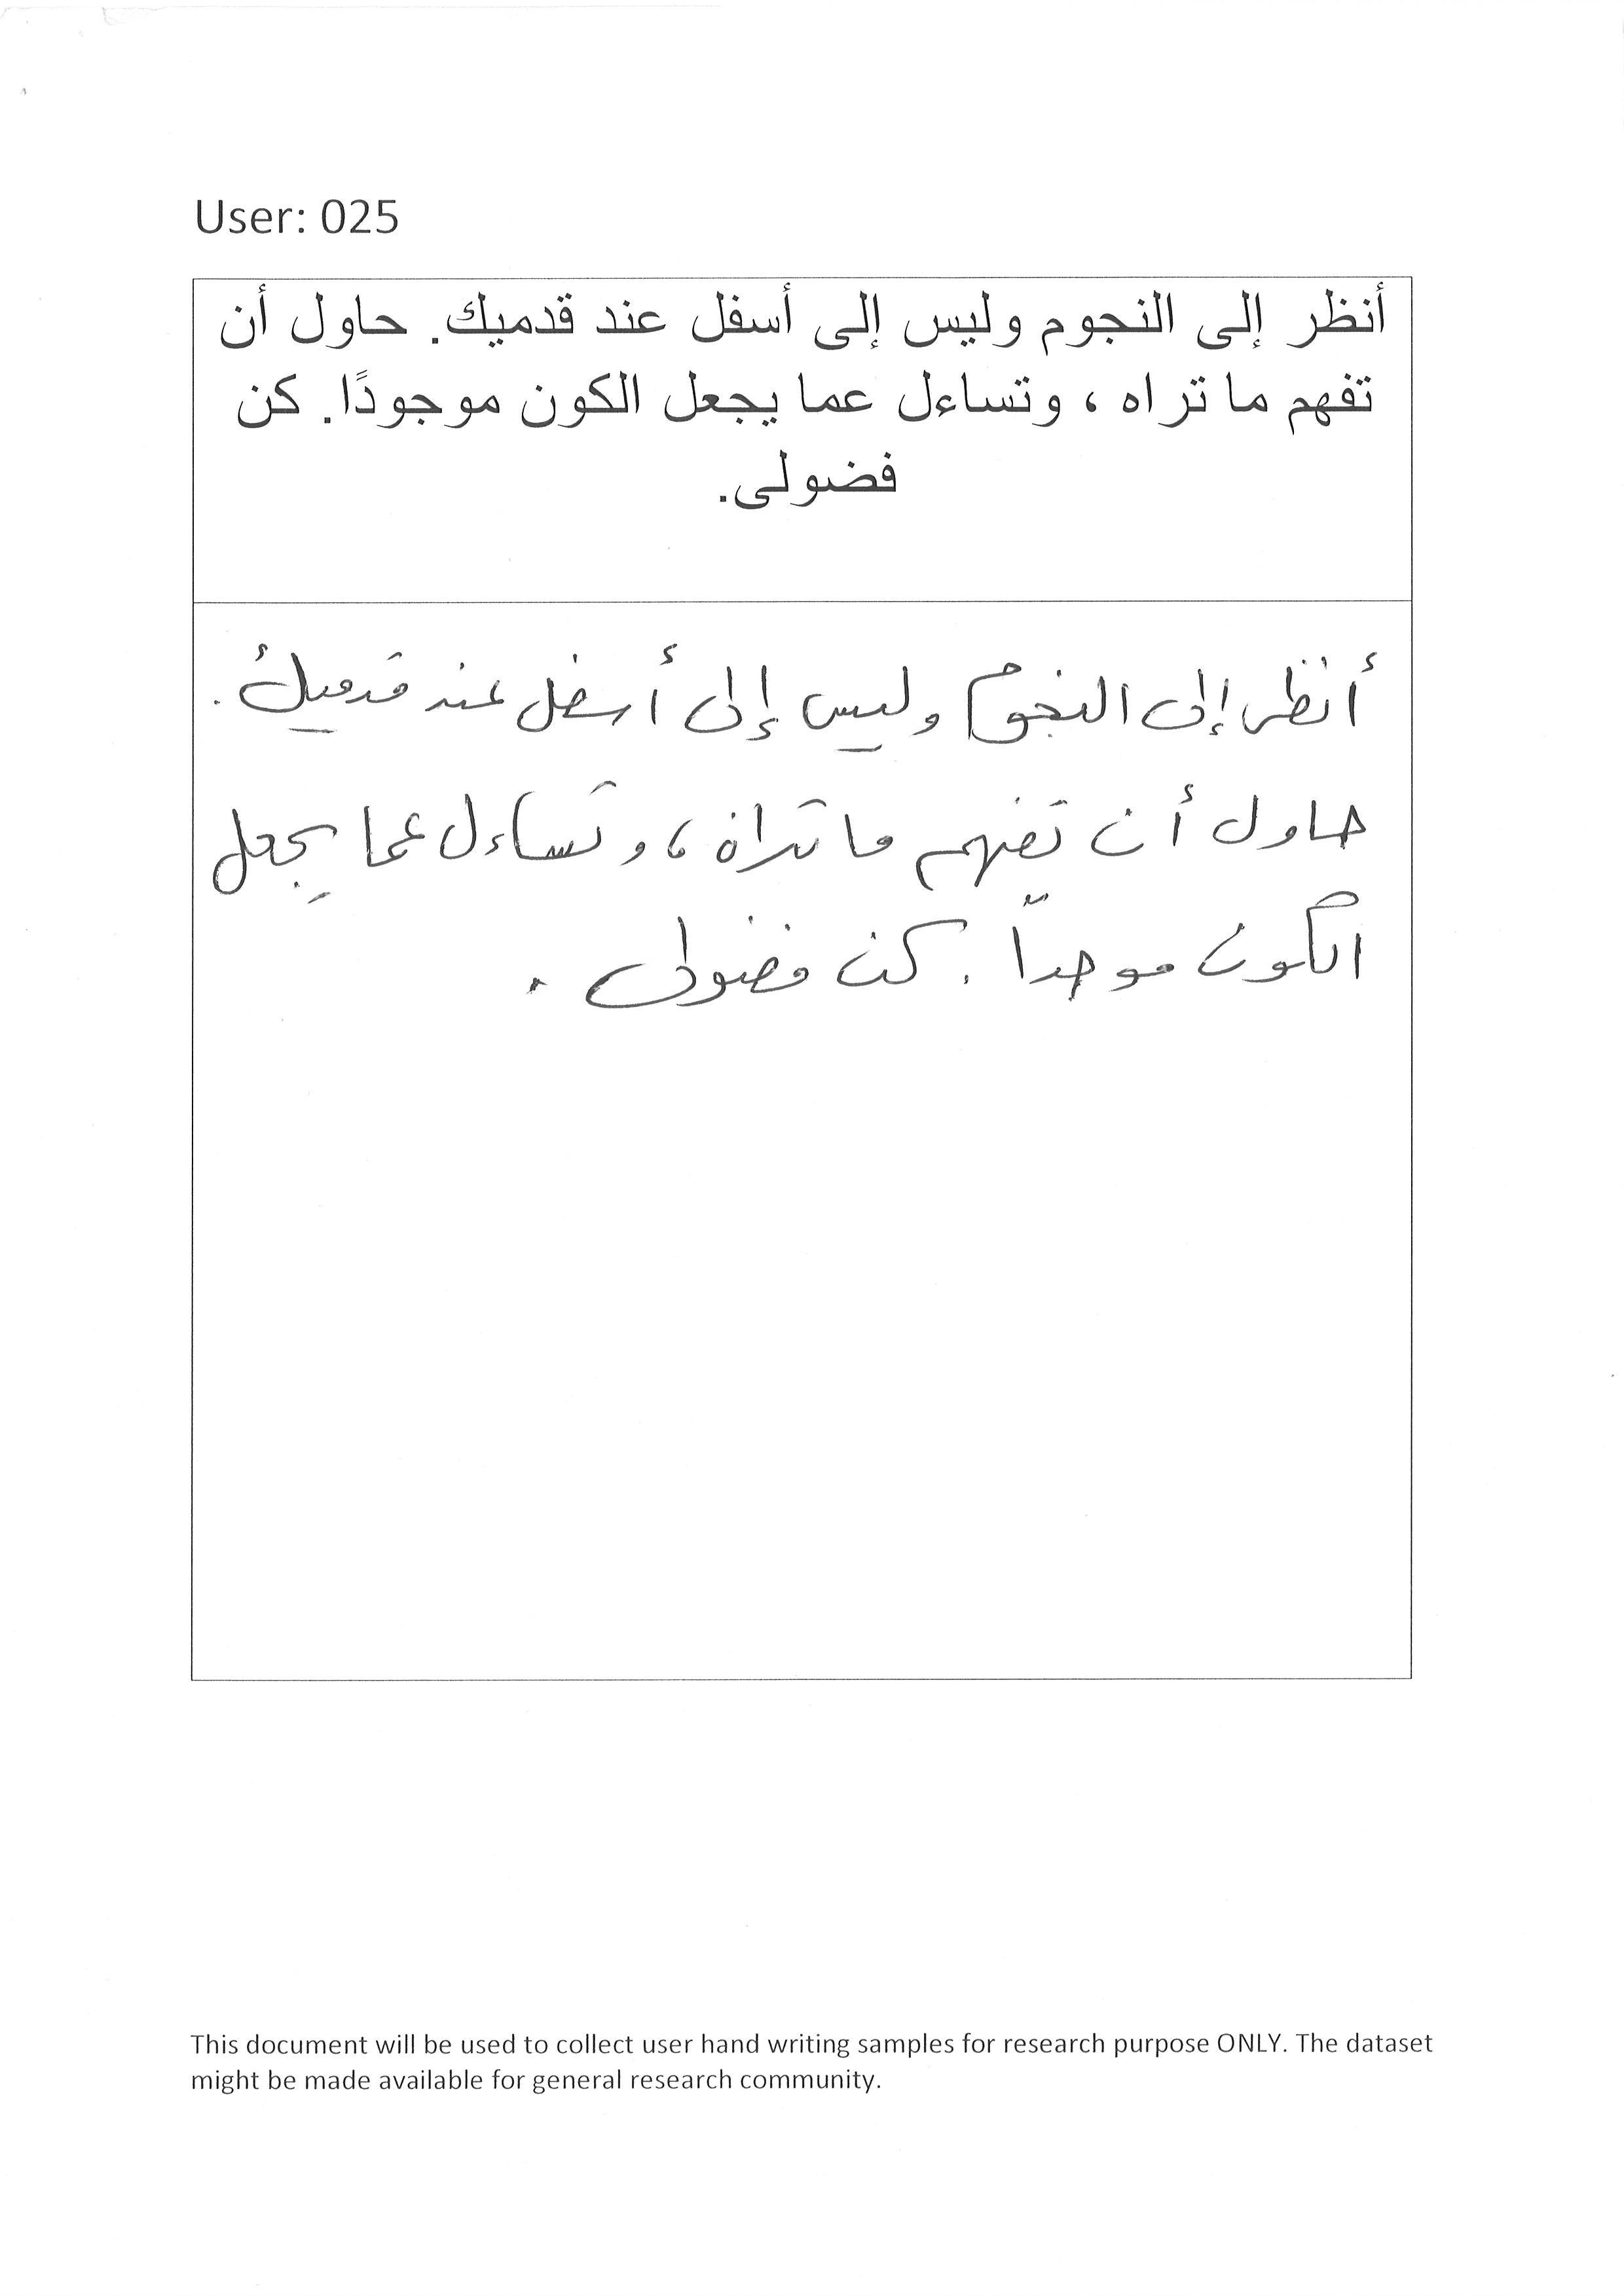 User: 025
أنظر إلى النجوم وليس إلى أسفل عند قدميك. حاول أن
تفهم ما تراه ، وتساءل عما يجعل الكون موجودًا. كن
فضولى.
أنظر إلى النجوم وليس إلى أسفل عند قدميك.
حاول أن تفهم ما تراه ، وتساءل عما يجعل
الكون موجداً . كن فضولى .
This document will be used to collect user hand writing samples for research purpose ONLY. The dataset
might be made available for general research community.